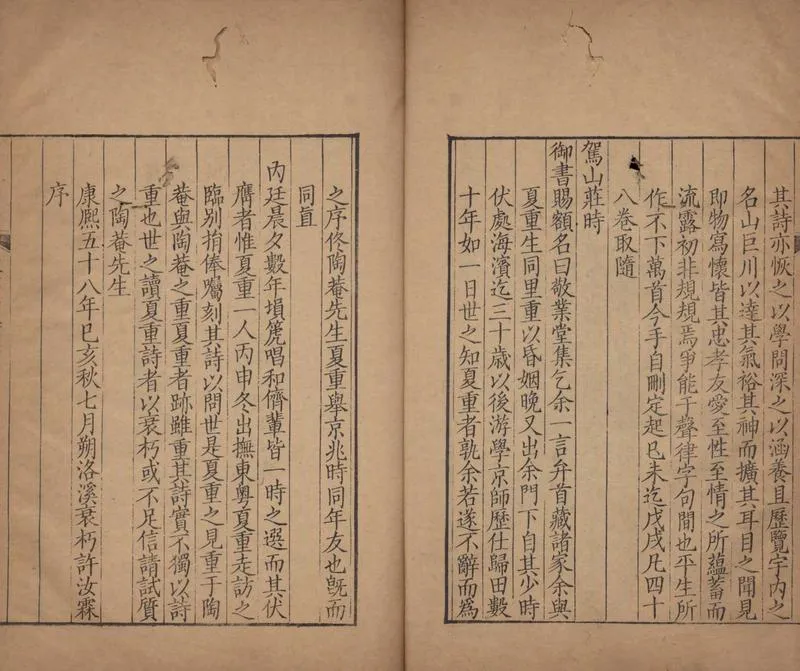 其詩亦恢之以學問深之以涵養且歷覽宇內之
名山巨川以達其氣裕其神而擴其耳目之聞見
即物寫懷皆其忠孝友愛至性至情之所蘊蓄而
流露初非規規焉爭能于聲律字句間也平生所
作不下萬首今手自刪定起巳未迄戊戌凡四十
八卷取隨
駕山莊時
御書賜額名曰敬業堂集乞余一言弁首藏諸家余與
夏重生同里重以昏姻晚又出余門下自其少時
伏處海濱迄三十歲以後游學京師歷仕歸田數
十年如一日世之知夏重者孰余若遂不辭而爲
之序佟陶菴先生夏重舉京兆時同年友也旣而
同直
內廷晨夕數年塤箎唱和儕輩皆一時之選而其伏
膺者惟夏重一人丙申冬出撫東粵夏重走訪之
臨别捐俸囑刻其詩以問世是夏重之見重于陶
菴與陶菴之重夏重者跡雖重其詩實不獨以詩
重也世之讀夏重詩者以衰朽或不足信請試質
之陶菴先生
康熙五十八年巳亥秋七月朔洛溪衰朽許汝霖
序